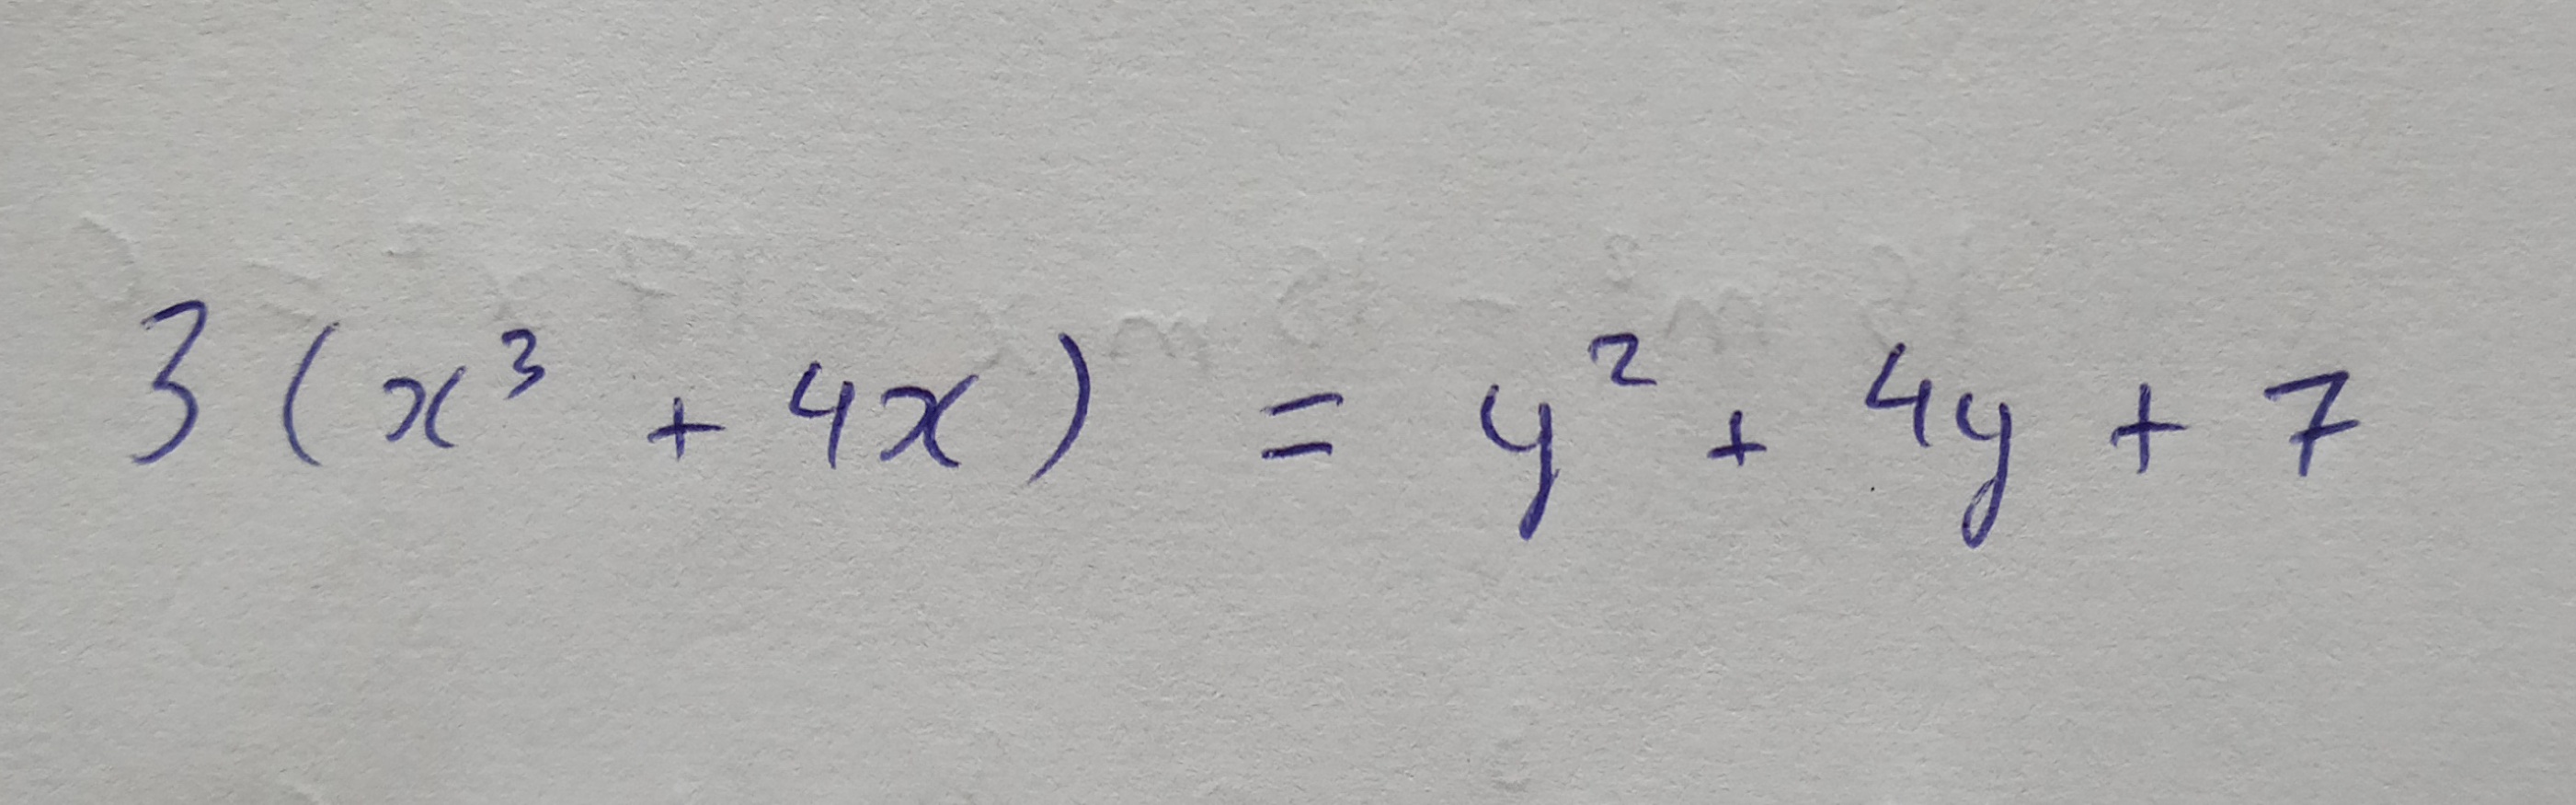 3(x³ + 4x) = y² + 4y + 7